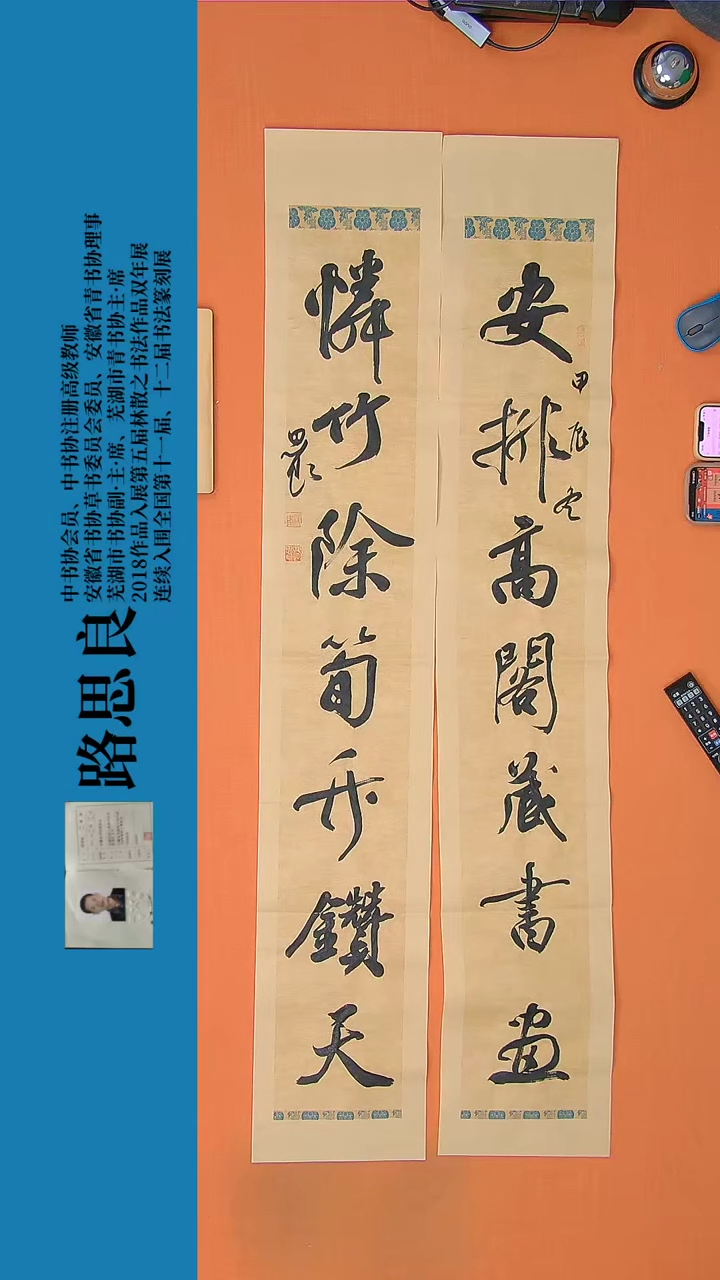 安排高閣藏書畫
甲辰冬
憐竹除筍不鑽天
思良
路思良
中书协会员、中书协注册高级教师
安徽省书协草书委员会委员、安徽省青书协理事
芜湖市书协副·主·席、芜湖市青书协主·席
2018作品入展第五届林散之书法作品双年展
连续入围全国第十一届、十二届书法篆刻展